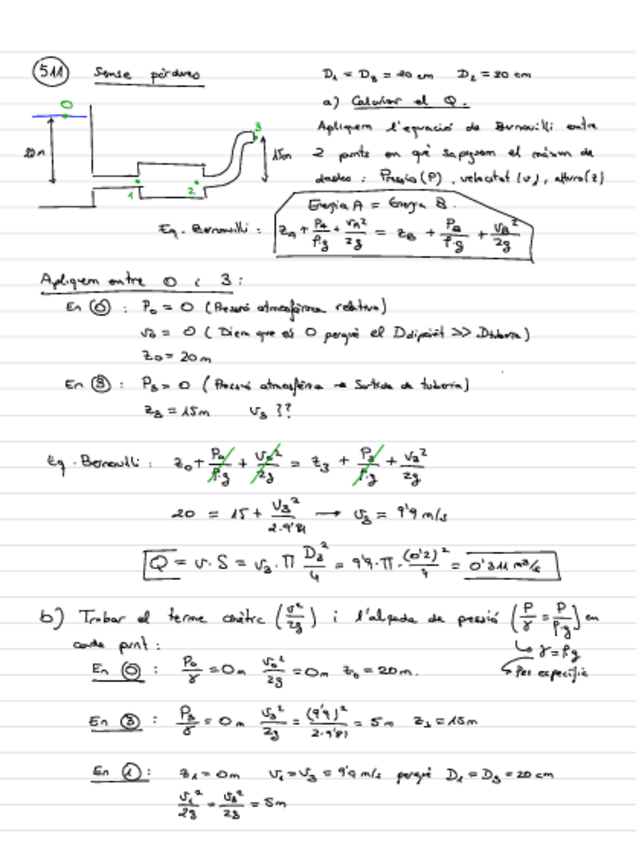 511 Sense pèrdues
D₁ = D₃ = 20 cm D₂ = 20 cm
a) Calcular el Q.
Apliquem l'equació de Bernouilli entre
2 punts en què sapiguem el màxim de
dades: Pressió (P), velocitat (v), altura (z)
0
20m
1
2
3
15m
Energia A = Energia B.
Eq. Bernouilli: z_A + P_A/ρ·g + v_A²/2g = z_B + P_B/ρ·g + v_B²/2g
Apliquem entre 0 i 3:
En ⓪: P₀ = 0 (Pressió atmosfèrica relativa)
v₀ = 0 (Diem que és 0 perquè el Ddipòsit >> Dtuberia)
z₀ = 20m
En ③: P₃ = 0 (Pressió atmosfèrica → Sortida de tuberia)
z₃ = 15m v₃ ??
Eq. Bernouilli: z₀ + P₀/ρ·g + v₀²/2g = z₃ + P₃/ρ·g + v₃²/2g
20 = 15 + v₃²/2·9'81 → v₃ = 9'9 m/s
Q = v·S = v₃·π D₃²/4 = 9'9·π·(0'2)²/4 = 0'311 m³/s
b) Trobar el terme cinètic (v²/2g) i l'alçada de pressió (P/γ = P/ρ·g) en
cada punt:
↳ γ = ρg
↳ Pes específic
En ⓪: P₀/γ = 0m v₀²/2g = 0m z₀ = 20m.
En ③: P₃/γ = 0m v₃²/2g = (9'9)²/2·9'81 = 5m z₃ = 15m
En ①: z₁ = 0m v₁ = v₃ = 9'9 m/s perquè D₁ = D₃ = 20 cm
v₁²/2g = v₃²/2g = 5m